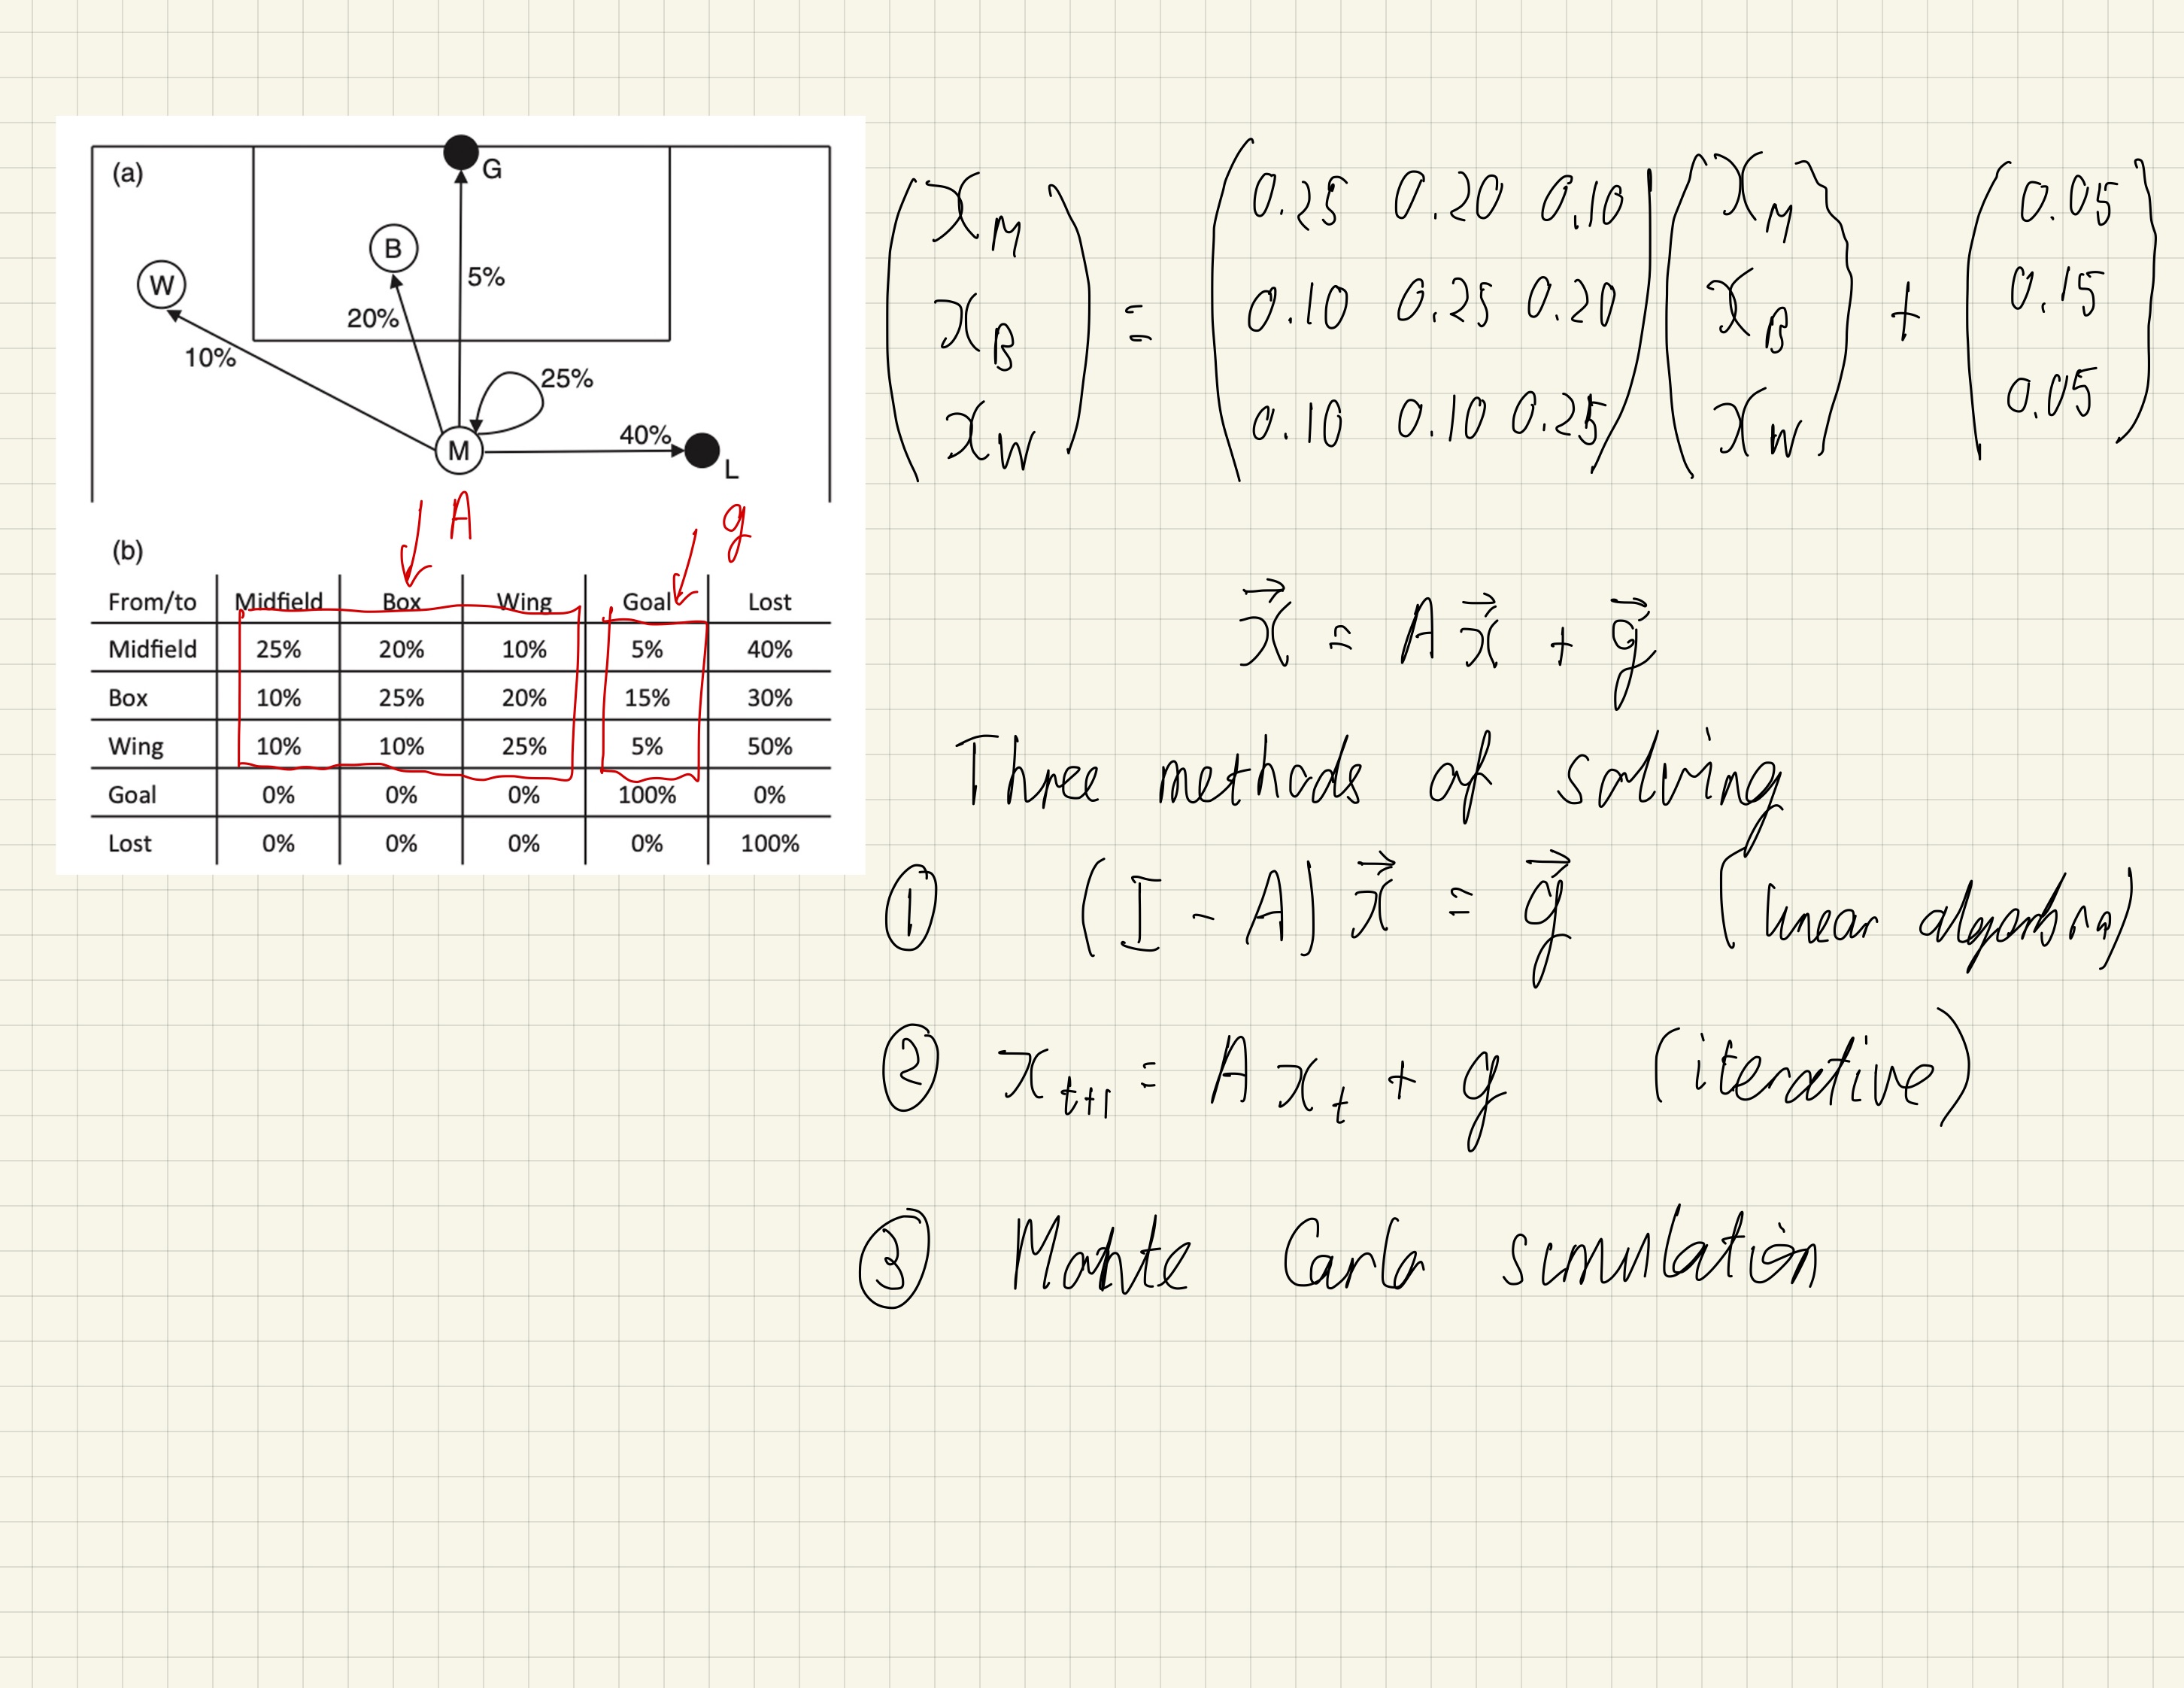 (a)
G
B
W
5%
20%
10%
25%
40%
M
L
A
g
(b)
From/to Midfield Box Wing Goal Lost
Midfield 25% 20% 10% 5% 40%
Box 10% 25% 20% 15% 30%
Wing 10% 10% 25% 5% 50%
Goal 0% 0% 0% 100% 0%
Lost 0% 0% 0% 0% 100%
x_M 0.25 0.20 0.10 x_M 0.05
x_B = 0.10 0.25 0.20 x_B + 0.15
x_W 0.10 0.10 0.25 x_W 0.05
x⃗ = A x⃗ + g⃗
Three methods of solving
① (I - A) x⃗ = g⃗ (linear algebra)
② x_{t+1} = A x_t + g (iterative)
③ Monte Carlo simulation